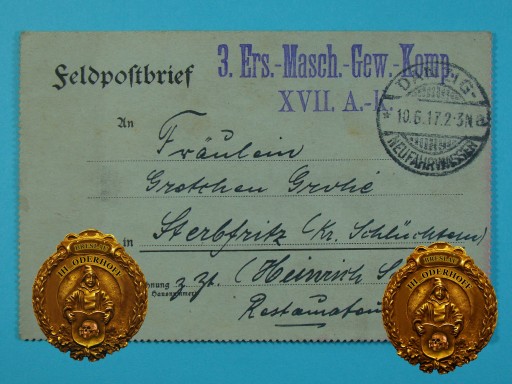 Feldpostbrief
3. Ers.-Masch.-Gew.-Komp.
XVII. A.-K.
DANZIG
* 10.6.17.2-3N a
NEUFAHRWASSER
An
Fräulein
Gretchen Grohé
in Sterbfritz (Kr. Schlüchtern)
zt. (Heinrich
Hausnummer
BRESLAU
III. ODERHOFF
BRESLAU
III. ODERHOFF